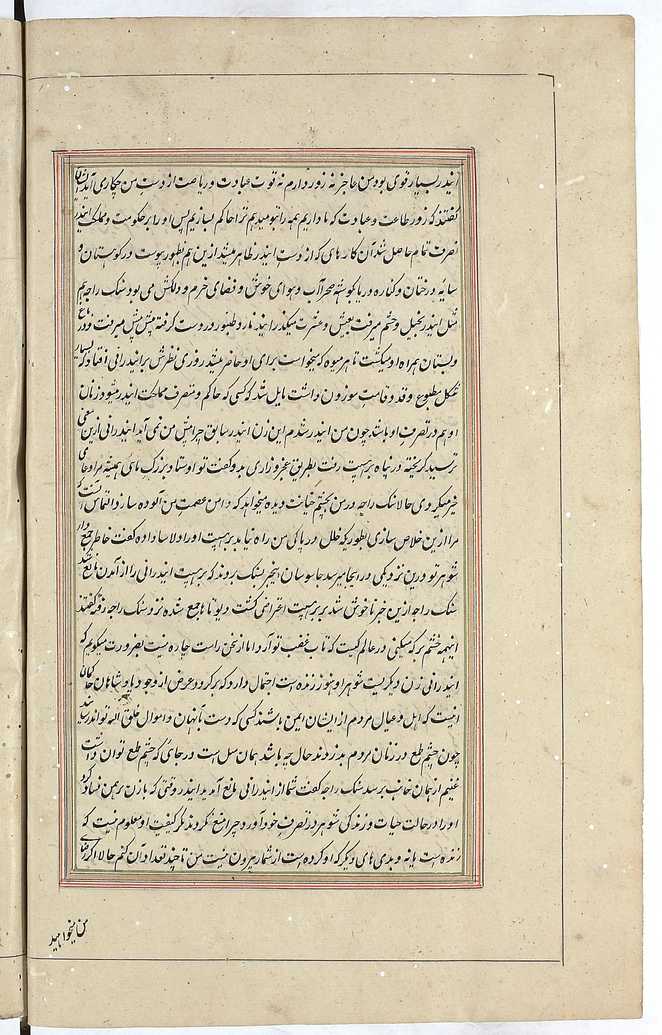 ایندر بسیار قوی بود من عاجز نه زور دارم نه قوت عبادت و ریاضت از دست من چکاری آید ایشان
گفتند که زور طاعت و عبادت که ما داریم همه را بتو میدهیم ترا حاکم میسازیم پس او را بر حکومت و مملکت ایندر
تصرف تمام حاصل شد آن کارهای که از دست ایندر ظاهر میشد ازین هم بظهور پیوست در کوهستان و
سایه درختان و کناره دریا که بسته صحرا آب و هوای خوش و فضای خرم و دلکش می بود سنک راجه هم
مثل ایندر بتجمل و حشم میرفت بعیش و عشرت میکند رانید نارد طنبور در دست گرفته پیش پیش میرفت و در باغ
و بستان همراه او میگشت تا هر میوه که میخواست برای او حاضر میشد روزی نظرش بر اندرانی افتاد که بسیار
شکل مطبوع و قد و قامت موزون داشت مایل شد که کسی که حاکم و متصرف مملکت ایندر میشود زنان
او هم در تصرف او باشد چون من ایندر شدم این زن ایندر سابق چرا پیش من نمی آید اندرانی ازین معنی
ترسید گریخته در پناه برهسپت رفت بطریق عجز و زاری بدو گفت تو اوستاد و بزرگ مائی همیشه مرا دعای
خیر میکردی حالا سنک راجه در من بچشم خیانت دیده میخواهد که دامن عصمت من آلوده سازد التماس آنست که
مرا ازین خلاص سازی بطور که خلل در پاکی من راه نیابد برهسپت او را دلاسا داده گفت خاطر جمع دار
شوهر تو درین نزدیکی در اینجا میرسد جاسوسان این خبر بسنک بردند که برهسپت اندرانی را از آمدن مانع شد
سنک راجه ازین خبر ناخوش شد بر برهسپت اعتراضی گشت دیوتاها جمع شده نزد سنک راجه رفته گفتند
اینهمه خشم بر که میکنی در عالم کیست که تاب غضب تو آرد اما از سخن راست چاره نیست بضرورت میگویم که
اندرانی زن دیگریست شوهر او هنوز زنده است احتمال دارد که برگردد غرض از وجود پادشاهان حاکمان
اینست که اهل و عیال مردم از ایشان ایمن باشند کسی که دست بآنهان و اموال خلق الله تواند رساند
چون چشم طمع در زنان مردم بد زوند حال چه باشد همان مثل است در جای که چشم طمع توان داشت
غنیم از همان جانب برسد سنک راجه گفت شما از اندرانی مانع آمدید ایندر وقتی که با زن برهمن فساد کرد
او را در حالت حیات و زندگی شوهر در تصرف خود آورد چرا منع نکردند مگر کیفیت او معلوم نیست که
زنده است یا نه و بدی های دیگر که او کرده است از شمار بیرون نیست من تا چند تعداد آن کنم حالا اگر رضای
من میخواهید